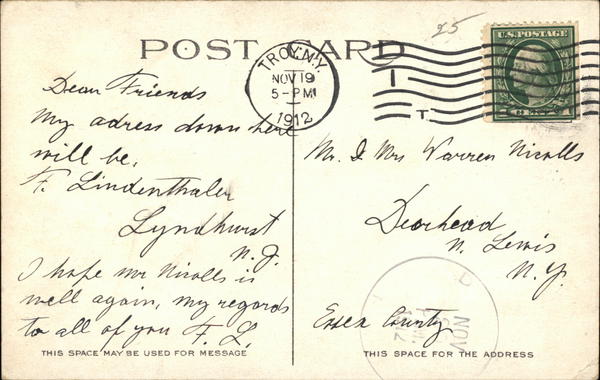 25
POST CARD
U.S. POSTAGE
TROY, N.Y.
NOV 19
5-PM
1912
1
T.
Dear Friends
My adress down here
will be,
F. Lindenthaler
Lyndhurst
N. J.
I hope Mr Nicolls is
well again, my regards
to all of you F. L.
Mr. & Mrs Warren Nicolls
Deerhead
N. Lewis
N. Y.
Essex County
NOV
THIS SPACE MAY BE USED FOR MESSAGE
THIS SPACE FOR THE ADDRESS